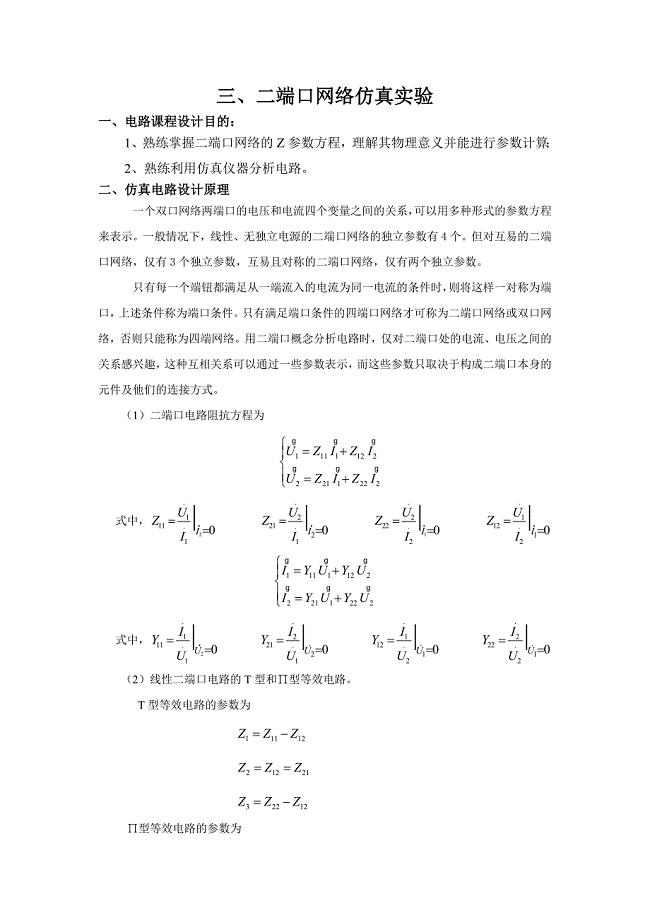 三、二端口网络仿真实验
一、电路课程设计目的：
1、熟练掌握二端口网络的 Z 参数方程，理解其物理意义并能进行参数计算;
2、熟练利用仿真仪器分析电路。
二、仿真电路设计原理
一个双口网络两端口的电压和电流四个变量之间的关系,可以用多种形式的参数方程
来表示。一般情况下，线性、无独立电源的二端口网络的独立参数有 4 个。但对互易的二端
口网络，仅有 3 个独立参数，互易且对称的二端口网络，仅有两个独立参数。
只有每一个端钮都满足从一端流入的电流为同一电流的条件时,则将这样一对称为端
口,上述条件称为端口条件。只有满足端口条件的四端口网络才可称为二端口网络或双口网
络，否则只能称为四端网络。用二端口概念分析电路时，仅对二端口处的电流、电压之间的
关系感兴趣，这种互相关系可以通过一些参数表示，而这些参数只取决于构成二端口本身的
元件及他们的连接方式。
（1）二端口电路阻抗方程为
U₁ = Z₁₁ I₁ + Z₁₂ I₂
U₂ = Z₂₁ I₁ + Z₂₂ I₂
式中，Z₁₁ = U̇₁/İ₁ |İ₂=0 Z₂₁ = U̇₂/İ₁ |İ₂=0 Z₂₂ = U̇₂/İ₂ |İ₁=0 Z₁₂ = U̇₁/İ₂ |İ₁=0
I₁ = Y₁₁ U₁ + Y₁₂ U₂
I₂ = Y₂₁ U₁ + Y₂₂ U₂
式中，Y₁₁ = İ₁/U̇₁ |U̇₂=0 Y₂₁ = İ₂/U̇₁ |U̇₂=0 Y₁₂ = İ₁/U̇₂ |U̇₁=0 Y₂₂ = İ₂/U̇₂ |U̇₁=0
（2）线性二端口电路的 T 型和∏型等效电路。
T 型等效电路的参数为
Z₁ = Z₁₁ − Z₁₂
Z₂ = Z₁₂ = Z₂₁
Z₃ = Z₂₂ − Z₁₂
∏型等效电路的参数为